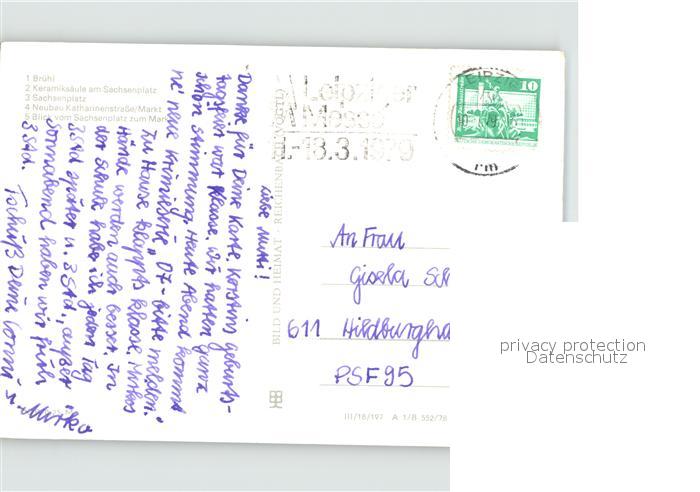 1 Brühl
2 Keramiksäule am Sachsenplatz
3 Sachsenplatz
4 Neubau Katharinenstraße/Markt
5 Blick vom Sachsenplatz zum Mark
Liebe Mutti!
Danke für Deine Karte. Kerstins Geburts-
tagsfeier war Klasse. Wir hatten ganz
schön Stimmung. Heute Abend kommt
ne neue Krimiserie "07 - bitte melden."
Zu Hause klappts klasse. Mirkos
Hände werden auch besser. In
der Schule habe ich jeden Tag
3 Std später u. 3 Std, außer
Sonnabend haben wir früh
3 Std. Tschüß Deine Conni
u. Mirko
BILD UND HEIMAT · REICHENBACH (VOGTL)
Leipziger
Messe
11.-18.3.1979
LEIPZIG
10
DEUTSCHE DEMOKRATISCHE REPUBLIK
rm
An Frau
Gisela Sch
611 Hildburgha
PSF 95
III/18/197 A 1/B 552/78
privacy protection
Datenschutz